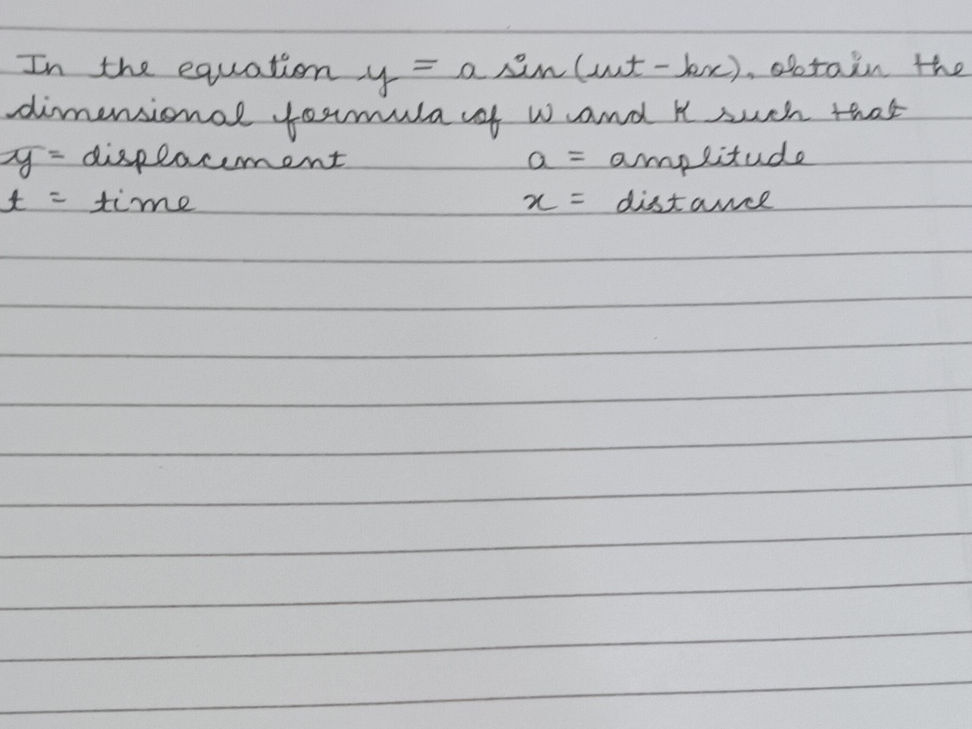 In the equation y = a sin (wt - kx), obtain the
dimensional formula of W and K such that
y = displacement a = amplitude
t = time x = distance